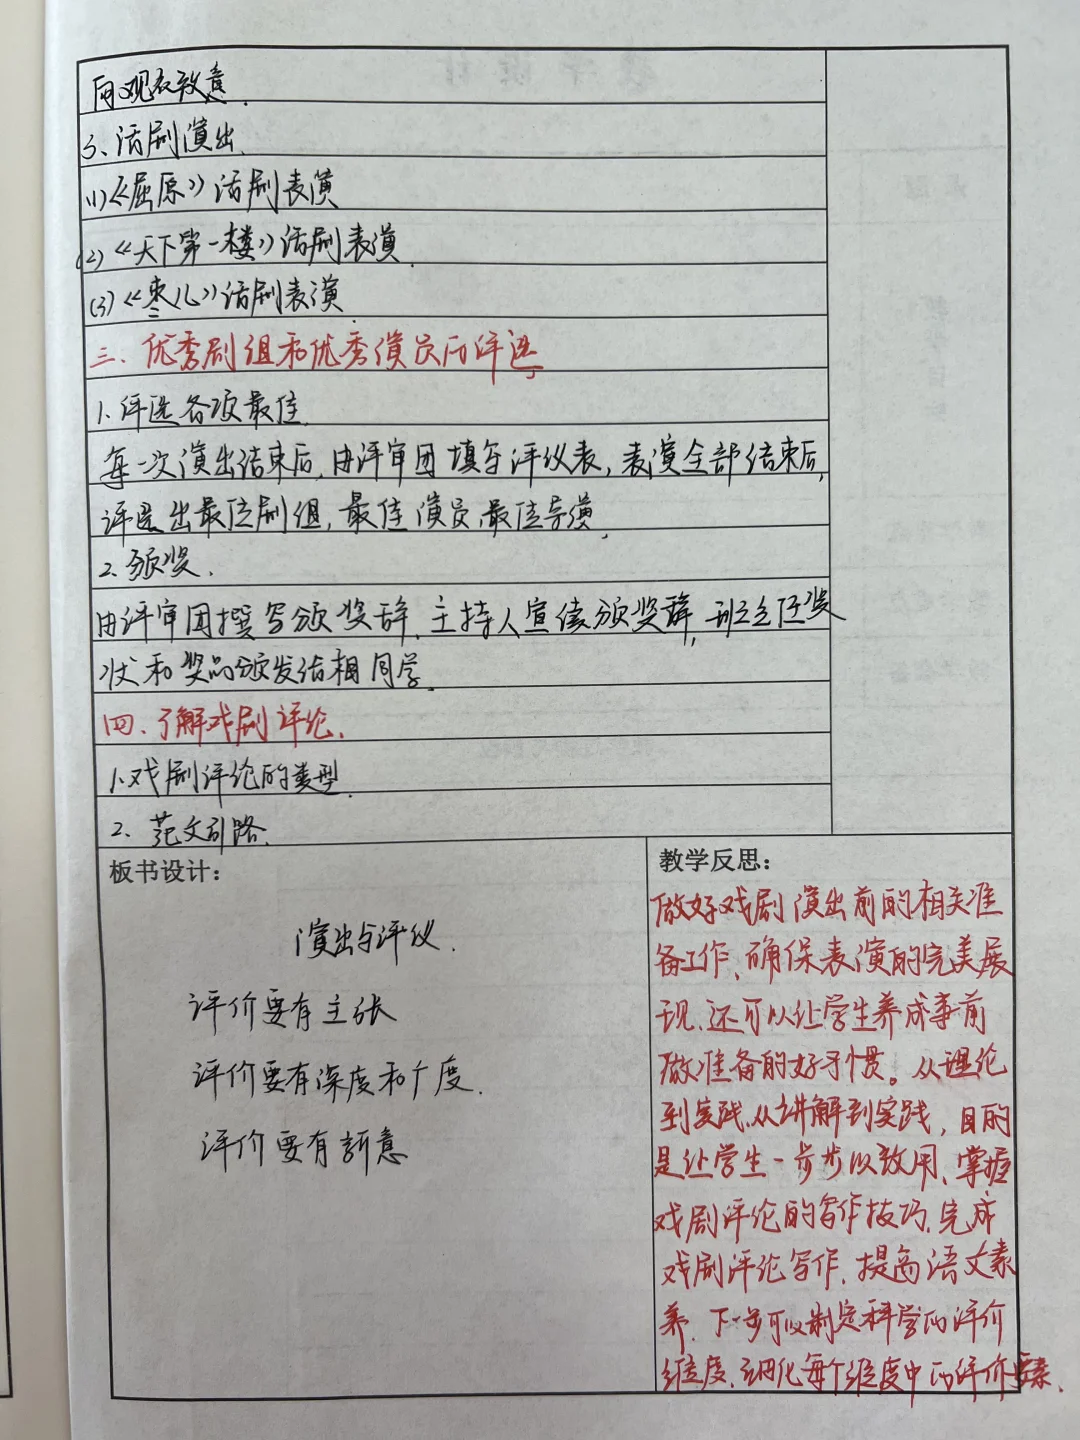 向观众致意.
3、话剧演出.
(1)《屈原》话剧表演
(2)《天下第一楼》话剧表演.
(3)《枣儿》话剧表演.
三、优秀剧组和优秀演员的评选
1.评选各项最佳.
每一次演出结束后,由评审团填写评议表,表演全部结束后,
评选出最佳剧组,最佳演员、最佳导演.
2.颁奖.
由评审团撰写颁奖辞.主持人宣读颁奖辞,班主任奖
状和奖品颁发给相同学.
四、了解戏剧评论.
1.戏剧评论的类型.
2.范文引路.
板书设计:
演出与评议.
评价要有主张
评价要有深度和广度.
评价要有新意
教学反思:
做好戏剧演出前的相关准
备工作、确保表演的完美展
现.还可以让学生养成事前
做准备的好习惯。从理论
到实践.从讲解到实践,目的
是让学生一步步以致用、掌握
戏剧评论的写作技巧.完成
戏剧评论写作.提高语文素
养.下一步可以制定科学的评价
维度.细化每个维度中的评价要素.